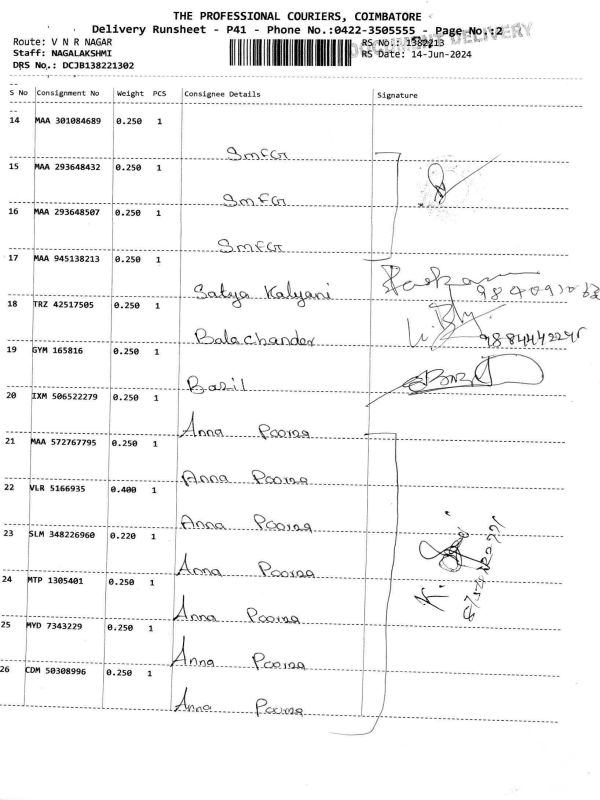 THE PROFESSIONAL COURIERS, COIMBATORE
Delivery Runsheet - P41 - Phone No.:0422-3505555 - Page No.:2
DOCUMENT DELIVERY
Route: V N R NAGAR RS No.: 1382213
Staff: NAGALAKSHMI RS Date: 14-Jun-2024
DRS No.: DCJB138221302
S No Consignment No Weight PCS Consignee Details Signature
14 MAA 301084689 0.250 1
SMFG
15 MAA 293648432 0.250 1
SMFG
16 MAA 293648507 0.250 1
SMFG
17 MAA 945138213 0.250 1
Satya Kalyani
18 TRZ 42517505 0.250 1
Balachander
19 GYM 165816 0.250 1
Basil
20 IXM 506522279 0.250 1
Anna Poorna
21 MAA 572767795 0.250 1
Anna Poorna
22 VLR 5166935 0.400 1
Anna Poorna
23 SLM 348226960 0.220 1
Anna Poorna
24 MTP 1305401 0.250 1
Anna Poorna
25 MYD 7343229 0.250 1
Anna Poorna
26 CDM 50308996 0.250 1
Anna Poorna